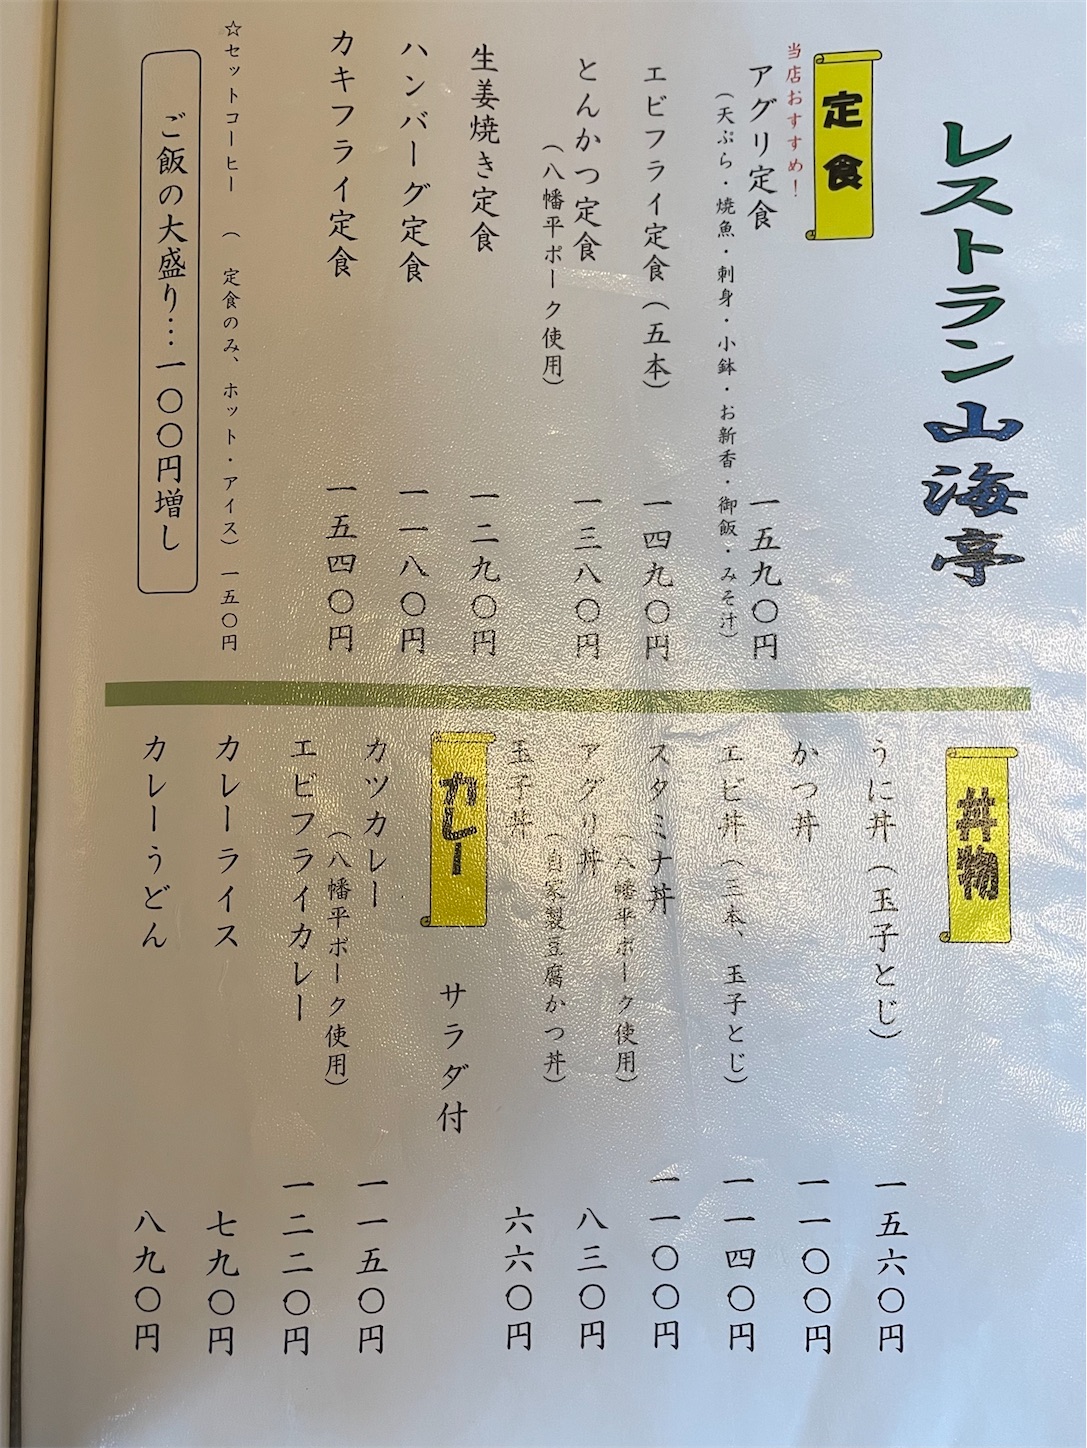 レストラン山海亭
定食
当店おすすめ！
アグリ定食 一五九〇円
（天ぷら・焼魚・刺身・小鉢・お新香・御飯・みそ汁）
エビフライ定食（五本） 一四九〇円
とんかつ定食 一三八〇円
（八幡平ポーク使用）
生姜焼き定食 一二九〇円
ハンバーグ定食 一一八〇円
カキフライ定食 一五四〇円
☆セットコーヒー （ 定食のみ、ホット・アイス）一五〇円
ご飯の大盛り…一〇〇円増し
丼物
うに丼（玉子とじ） 一五六〇円
かつ丼 一一〇〇円
エビ丼（三本、玉子とじ） 一一四〇円
スタミナ丼 一一〇〇円
（八幡平ポーク使用）
アグリ丼 八三〇円
（自家製豆腐かつ丼）
玉子丼 六六〇円
カレー サラダ付
カツカレー 一一五〇円
（八幡平ポーク使用）
エビフライカレー 一二二〇円
カレーライス 七九〇円
カレーうどん 八九〇円